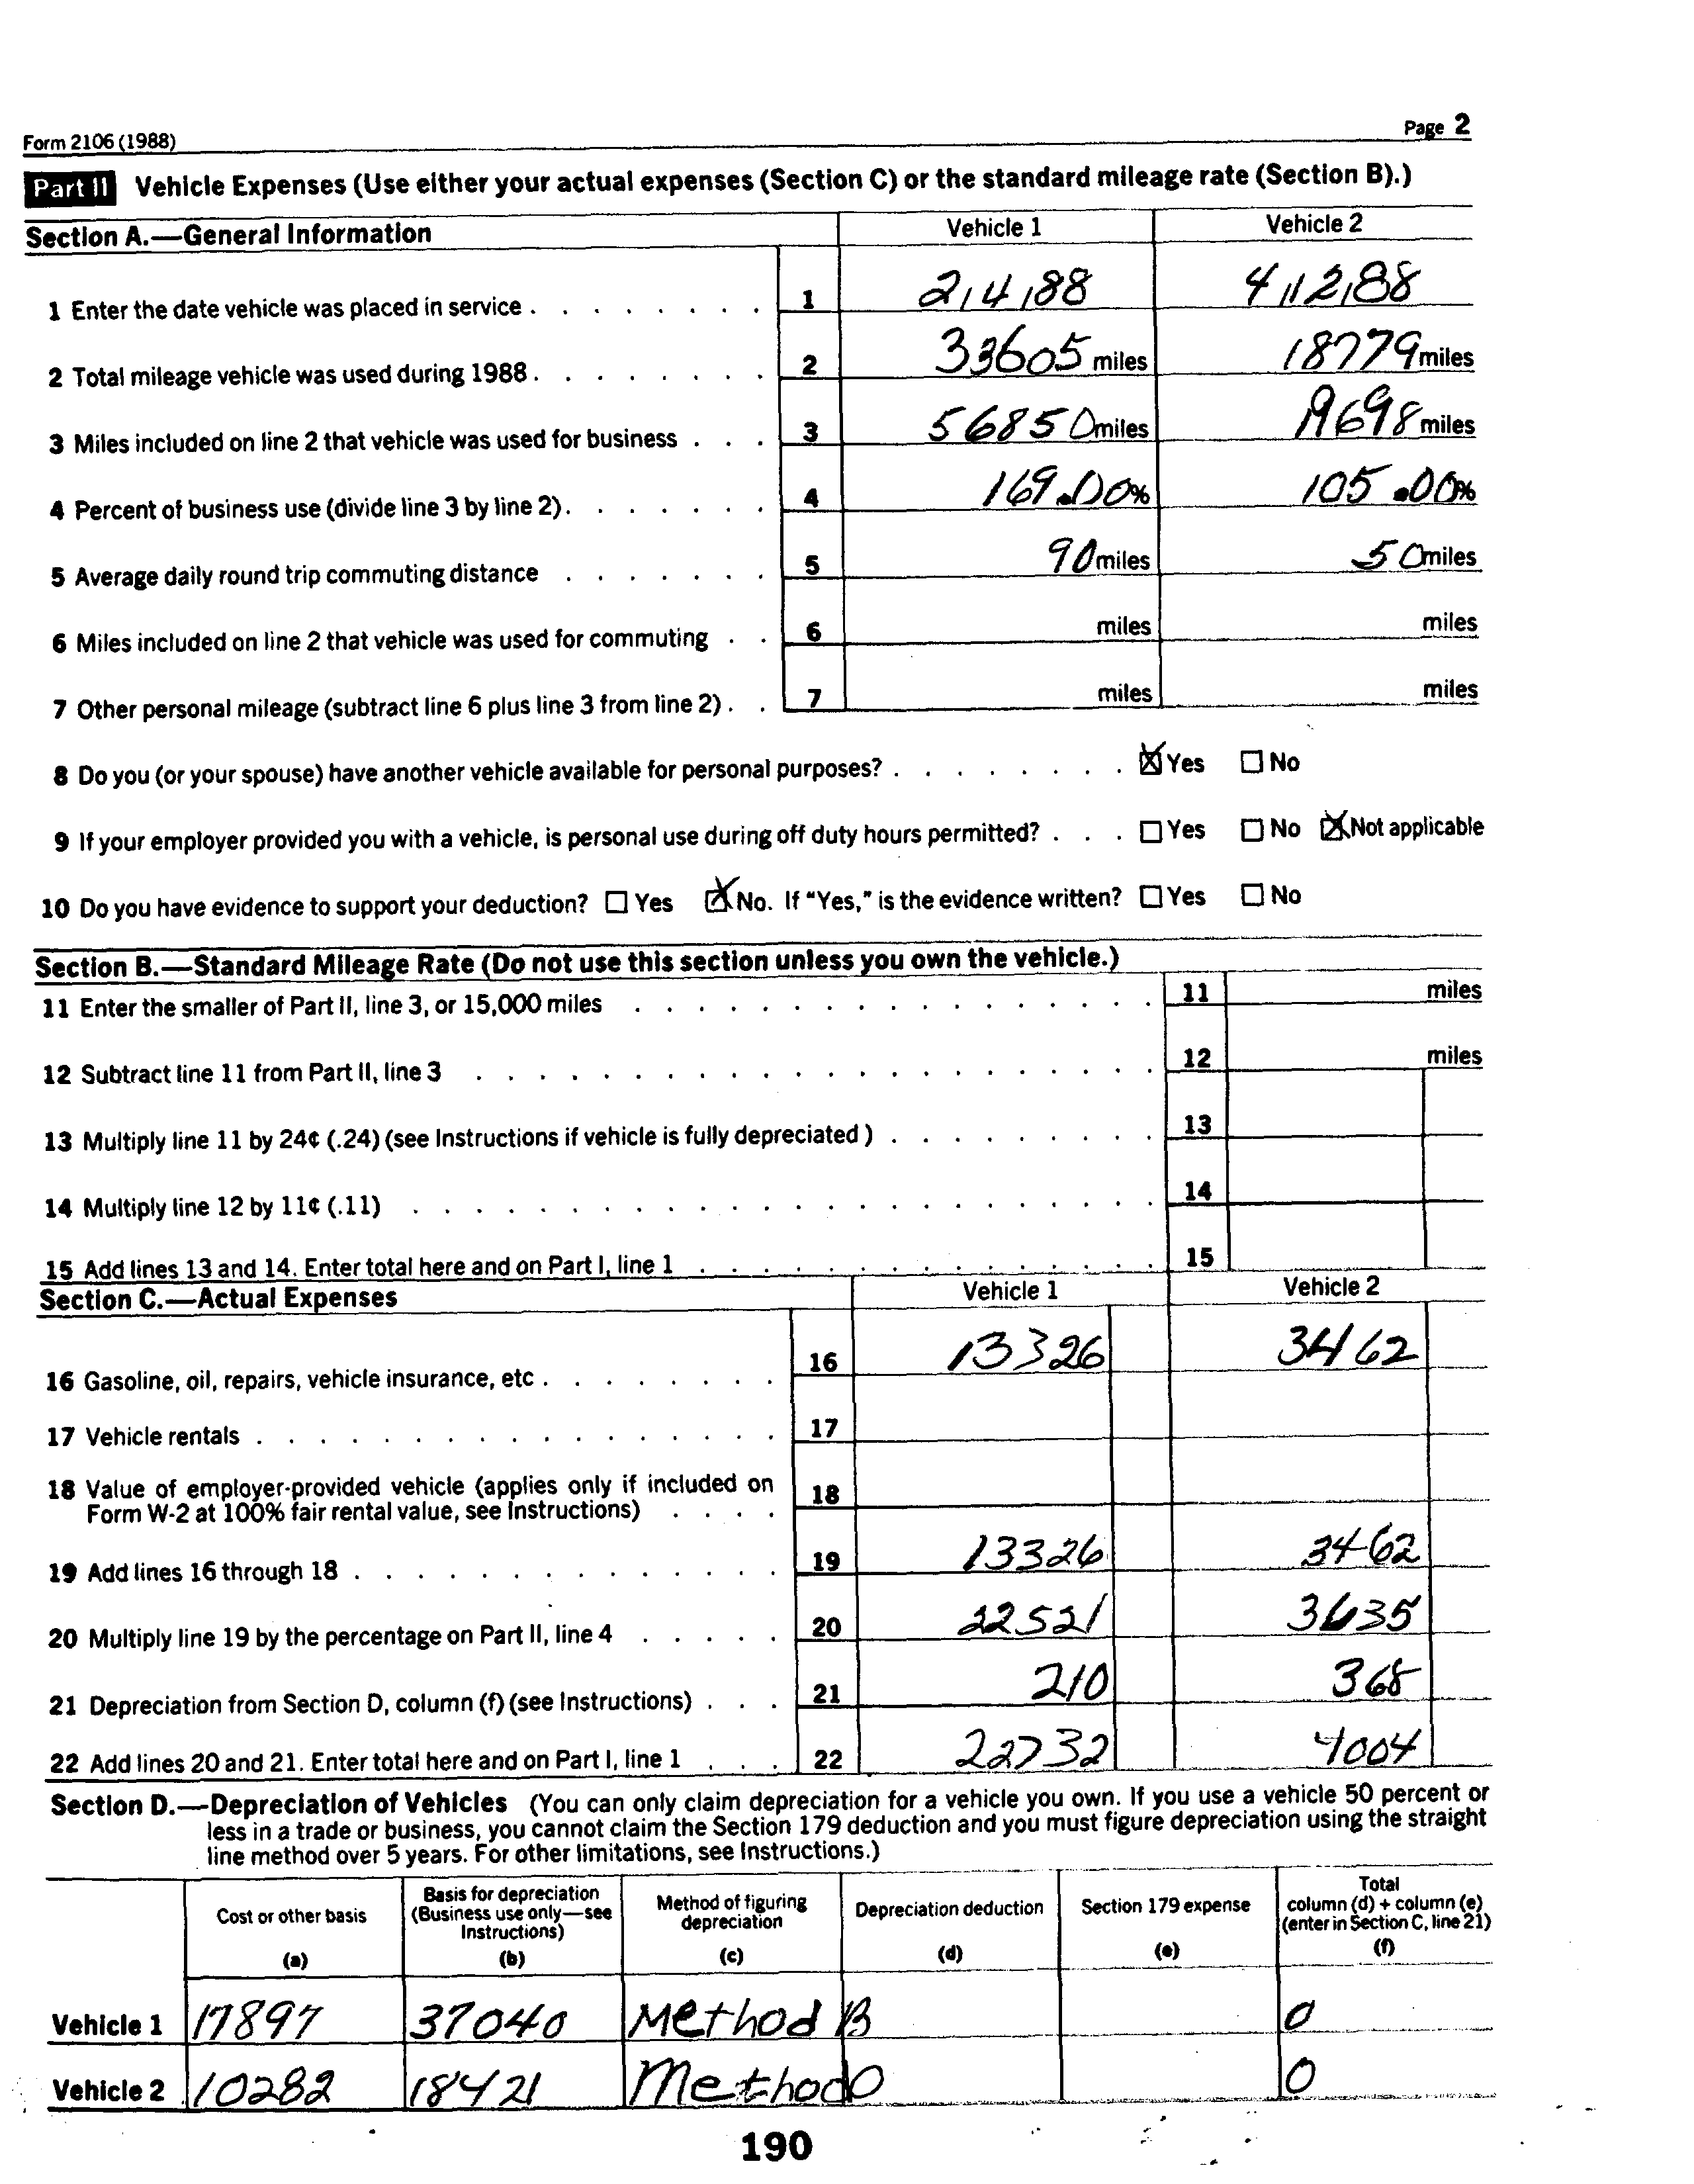 Form 2106 (1988)
Page 2
Part II Vehicle Expenses (Use either your actual expenses (Section C) or the standard mileage rate (Section B).)
Section A.—General Information Vehicle 1 Vehicle 2
1 Enter the date vehicle was placed in service . . . . . . . . 1 2/4/88 4/12/88
2 Total mileage vehicle was used during 1988 . . . . . . . . 2 33605 miles 18779 miles
3 Miles included on line 2 that vehicle was used for business . . . 3 56850 miles 19698 miles
4 Percent of business use (divide line 3 by line 2) . . . . . . . 4 169.00% 105.00%
5 Average daily round trip commuting distance . . . . . . . 5 90 miles 50 miles
6 Miles included on line 2 that vehicle was used for commuting . . 6 miles miles
7 Other personal mileage (subtract line 6 plus line 3 from line 2) . . 7 miles miles
8 Do you (or your spouse) have another vehicle available for personal purposes? . . . . . . . . ☒ Yes ☐ No
9 If your employer provided you with a vehicle, is personal use during off duty hours permitted? . . . ☐ Yes ☐ No ☒ Not applicable
10 Do you have evidence to support your deduction? ☐ Yes ☒ No. If "Yes," is the evidence written? ☐ Yes ☐ No
Section B.—Standard Mileage Rate (Do not use this section unless you own the vehicle.)
11 Enter the smaller of Part II, line 3, or 15,000 miles . . . . . . . . . . . . . . . . . 11 miles
12 Subtract line 11 from Part II, line 3 . . . . . . . . . . . . . . . . . . . . . . 12 miles
13 Multiply line 11 by 24¢ (.24) (see Instructions if vehicle is fully depreciated ) . . . . . . . . . 13
14 Multiply line 12 by 11¢ (.11) . . . . . . . . . . . . . . . . . . . . . . . . 14
15 Add lines 13 and 14. Enter total here and on Part I, line 1 . . . . . . . . . . . . . . . 15
Section C.—Actual Expenses Vehicle 1 Vehicle 2
16 Gasoline, oil, repairs, vehicle insurance, etc . . . . . . . . 16 13326 3462
17 Vehicle rentals . . . . . . . . . . . . . . . . . 17
18 Value of employer-provided vehicle (applies only if included on 18
Form W-2 at 100% fair rental value, see Instructions) . . . .
19 Add lines 16 through 18 . . . . . . . . . . . . . . 19 13326 3462
20 Multiply line 19 by the percentage on Part II, line 4 . . . . . 20 22521 3635
21 Depreciation from Section D, column (f) (see Instructions) . . . 21 210 368
22 Add lines 20 and 21. Enter total here and on Part I, line 1 . . . 22 22732 4004
Section D.—Depreciation of Vehicles (You can only claim depreciation for a vehicle you own. If you use a vehicle 50 percent or
less in a trade or business, you cannot claim the Section 179 deduction and you must figure depreciation using the straight
line method over 5 years. For other limitations, see Instructions.)
Cost or other basis
(a)
Basis for depreciation
(Business use only—see
Instructions)
(b)
Method of figuring
depreciation
(c)
Depreciation deduction
(d)
Section 179 expense
(e)
Total
column (d) + column (e)
(enter in Section C, line 21)
(f)
Vehicle 1 17897 37040 Method B 0
Vehicle 2 10282 18421 Method 0
190